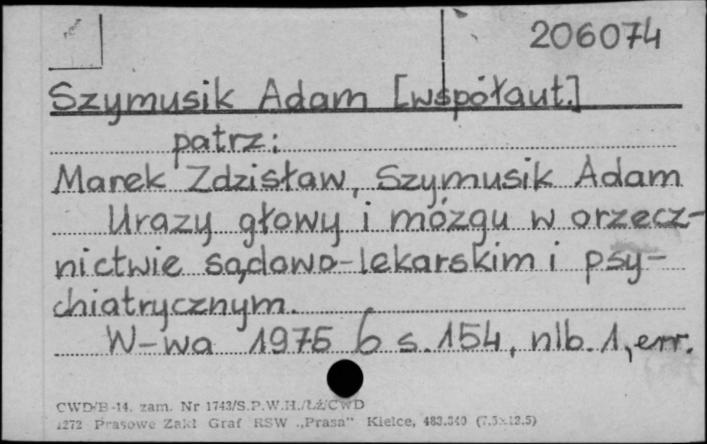 206074
Szymusik Adam [współaut.]
patrz:
Marek Zdzisław, Szymusik Adam
Urazy głowy i mózgu w orzecz-
nictwie sądowo-lekarskim i psy-
chiatrycznym.
W-wa 1976 6 s. 154, nlb. 1, err.
CWD/B-14. zam. Nr 1743/S.P.W.H./Łź/CWD
1272 Prasowe Zakł Graf RSW „Prasa" Kielce, 483.340 (7.5×12.5)